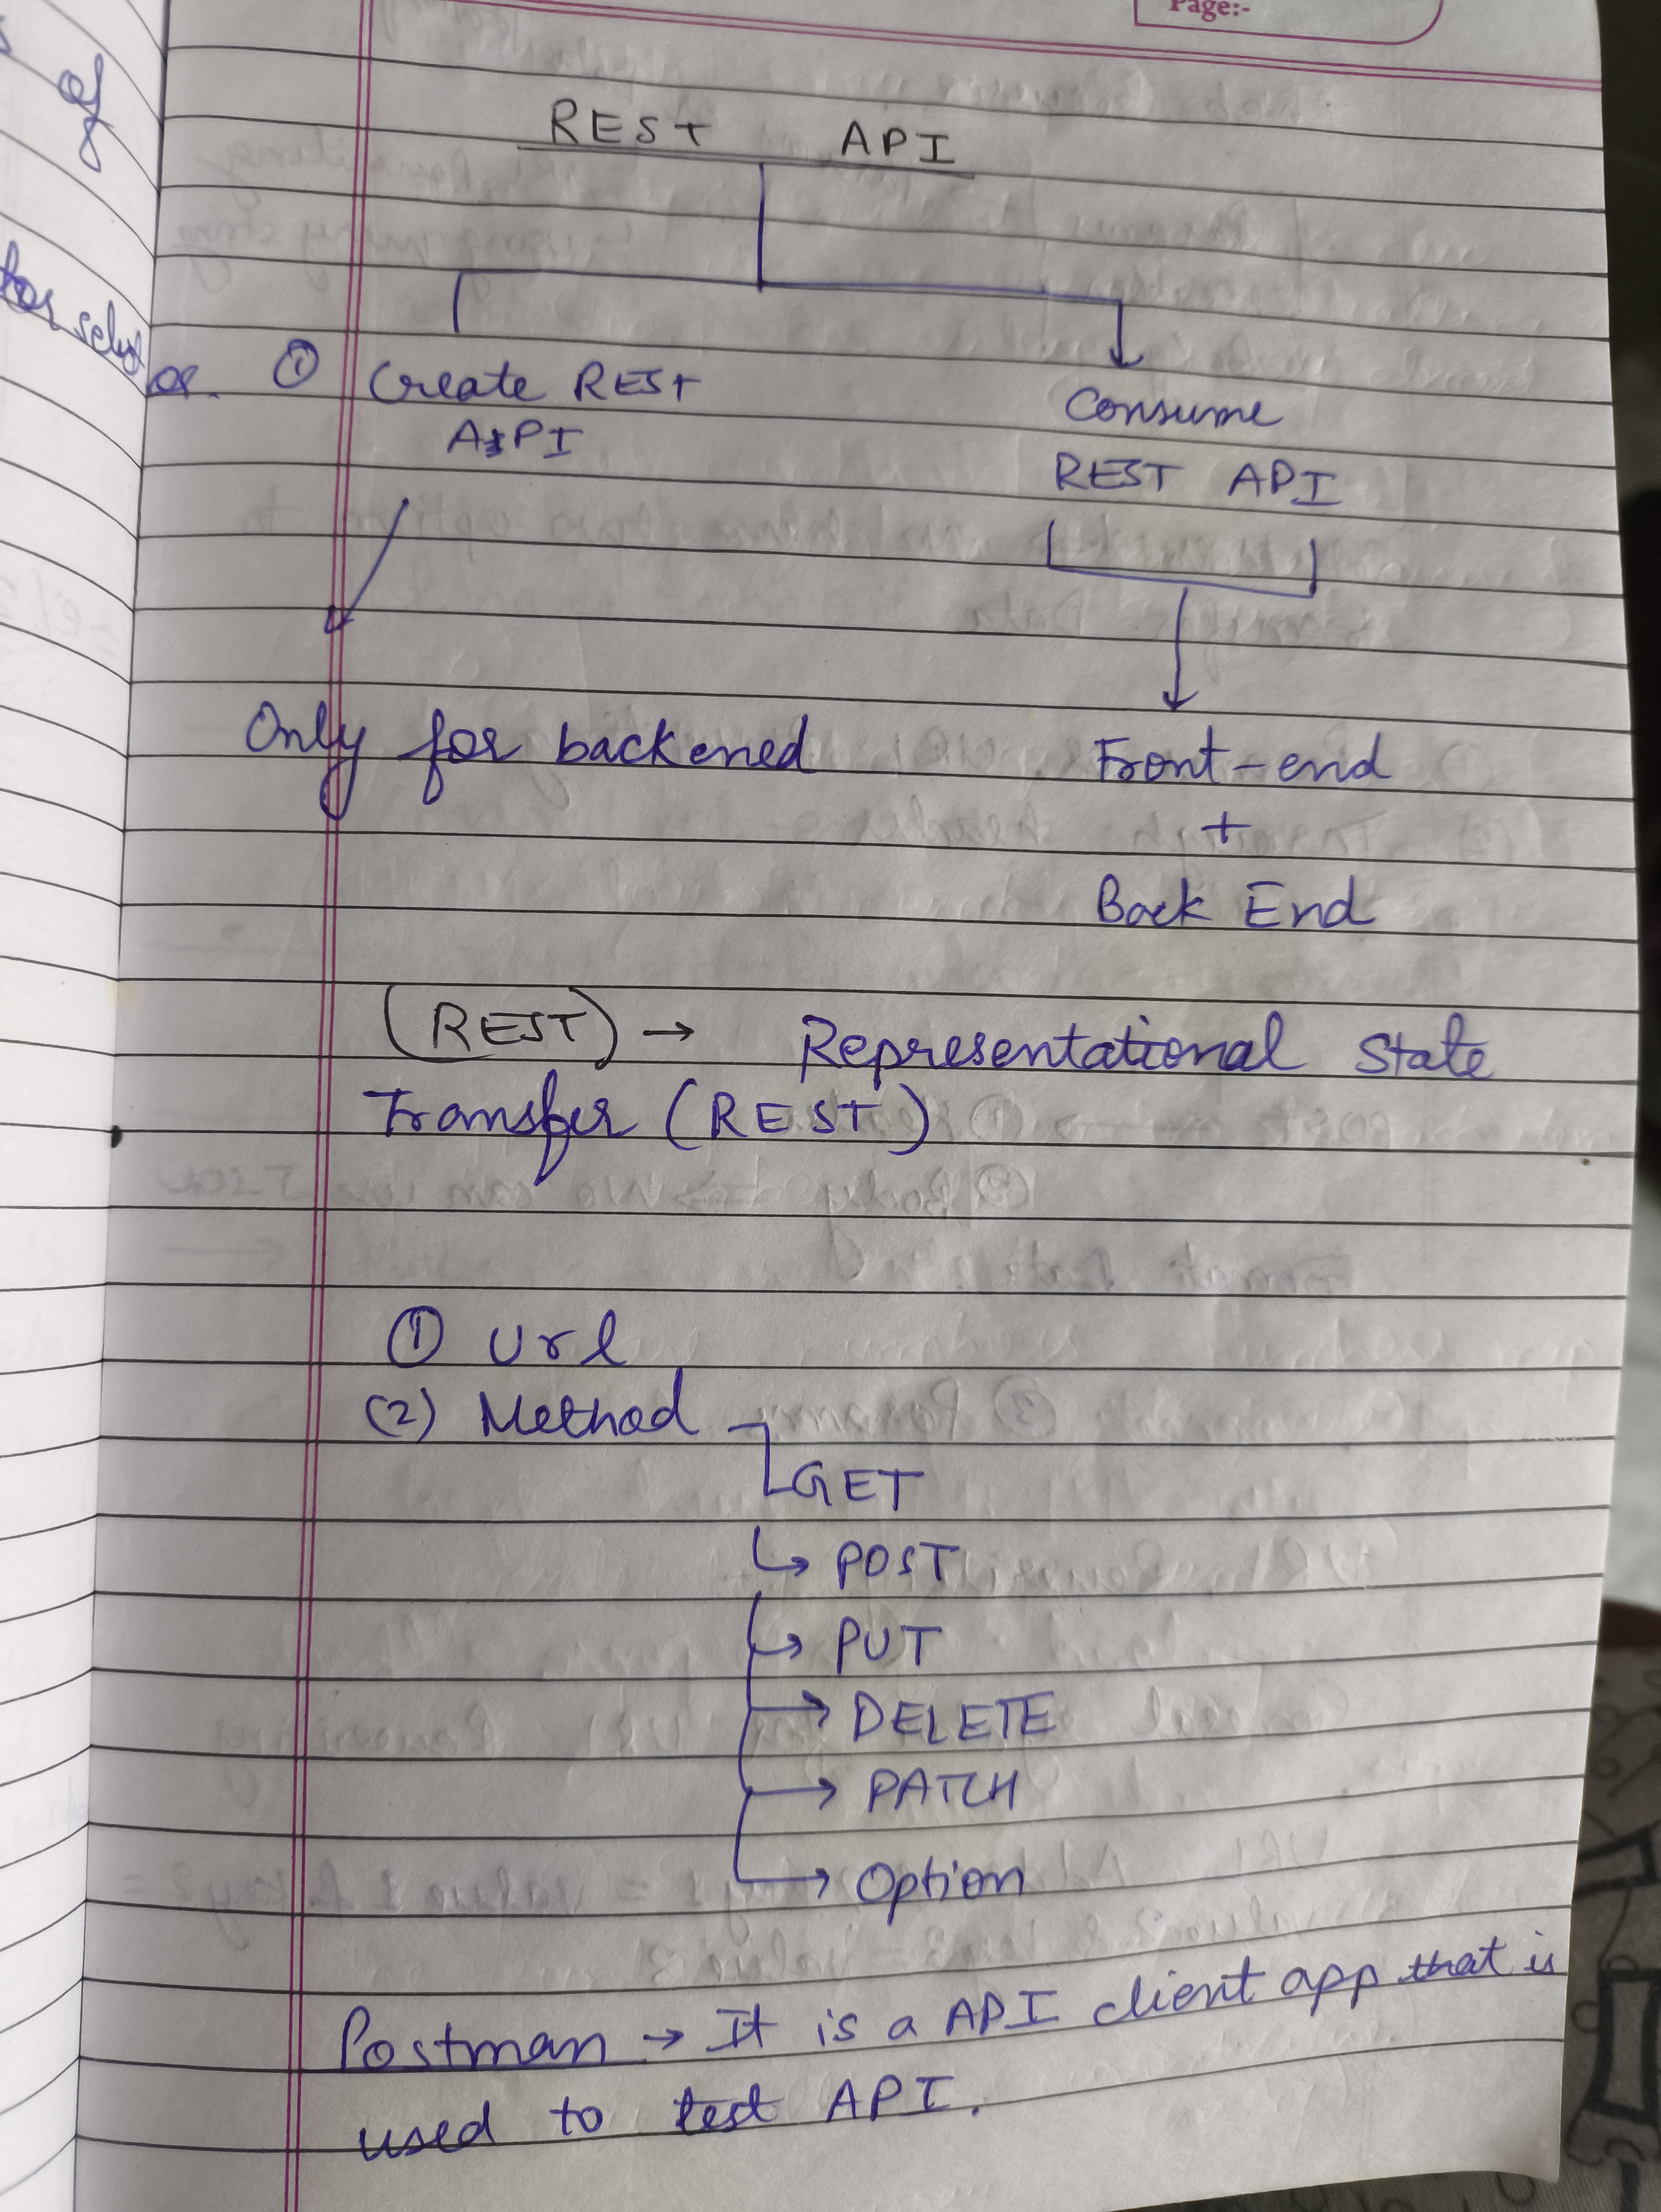 Page:-
of
REST API
① Create REST
API
Consume
REST API
Only for backened
Front-end
+
Back End
(REST) → Representational State
Transfer (REST)
① Url
(2) Method
GET
↳ POST
↳ PUT
→ DELETE
→ PATCH
→ Option
Postman → It is a API client app that is
used to test API.